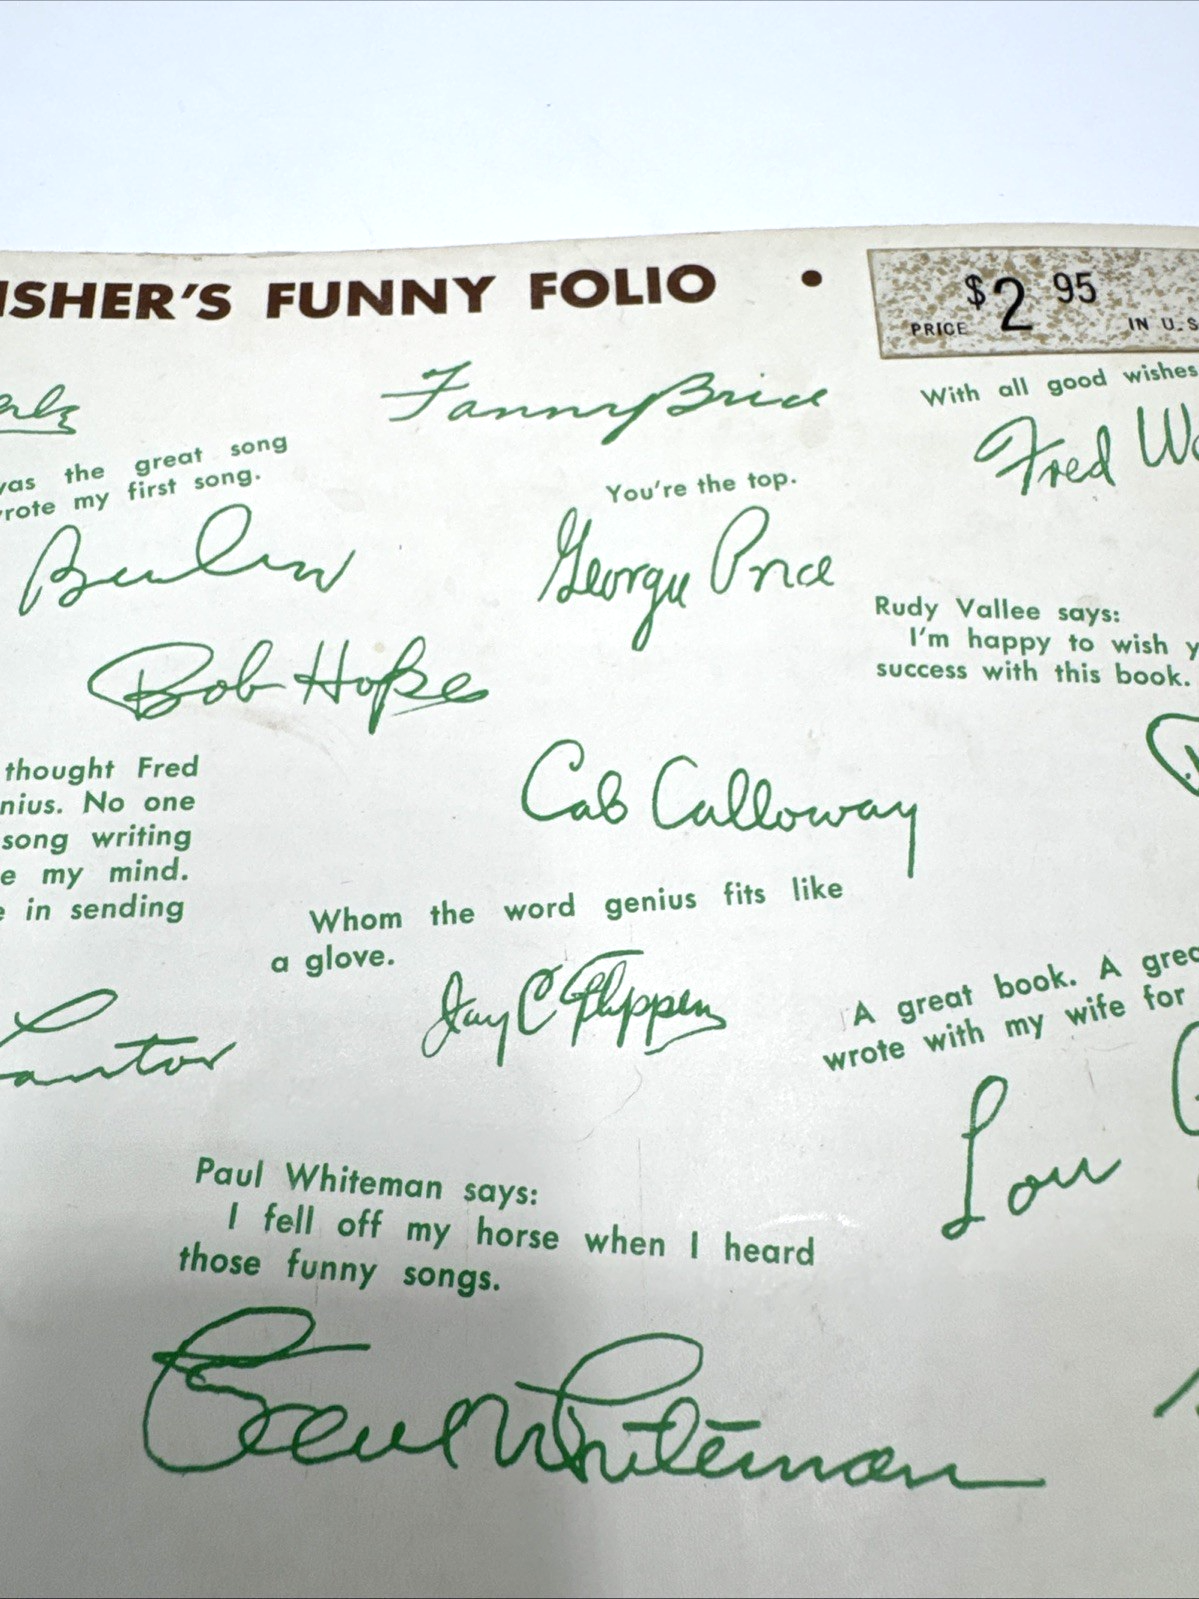 ISHER'S FUNNY FOLIO •
$2 95
PRICE IN U.S
Fanny Brice
With all good wishes
Fred
was the great song
wrote my first song.
Berlin
You're the top.
George Price
Rudy Vallee says:
I'm happy to wish y
success with this book.
Bob Hope
thought Fred
nius. No one
song writing
e my mind.
e in sending
Cantor
Cab Calloway
Whom the word genius fits like
a glove.
Jay C Flippen
A great book. A grea
wrote with my wife for
Lou
Paul Whiteman says:
I fell off my horse when I heard
those funny songs.
Paul Whiteman